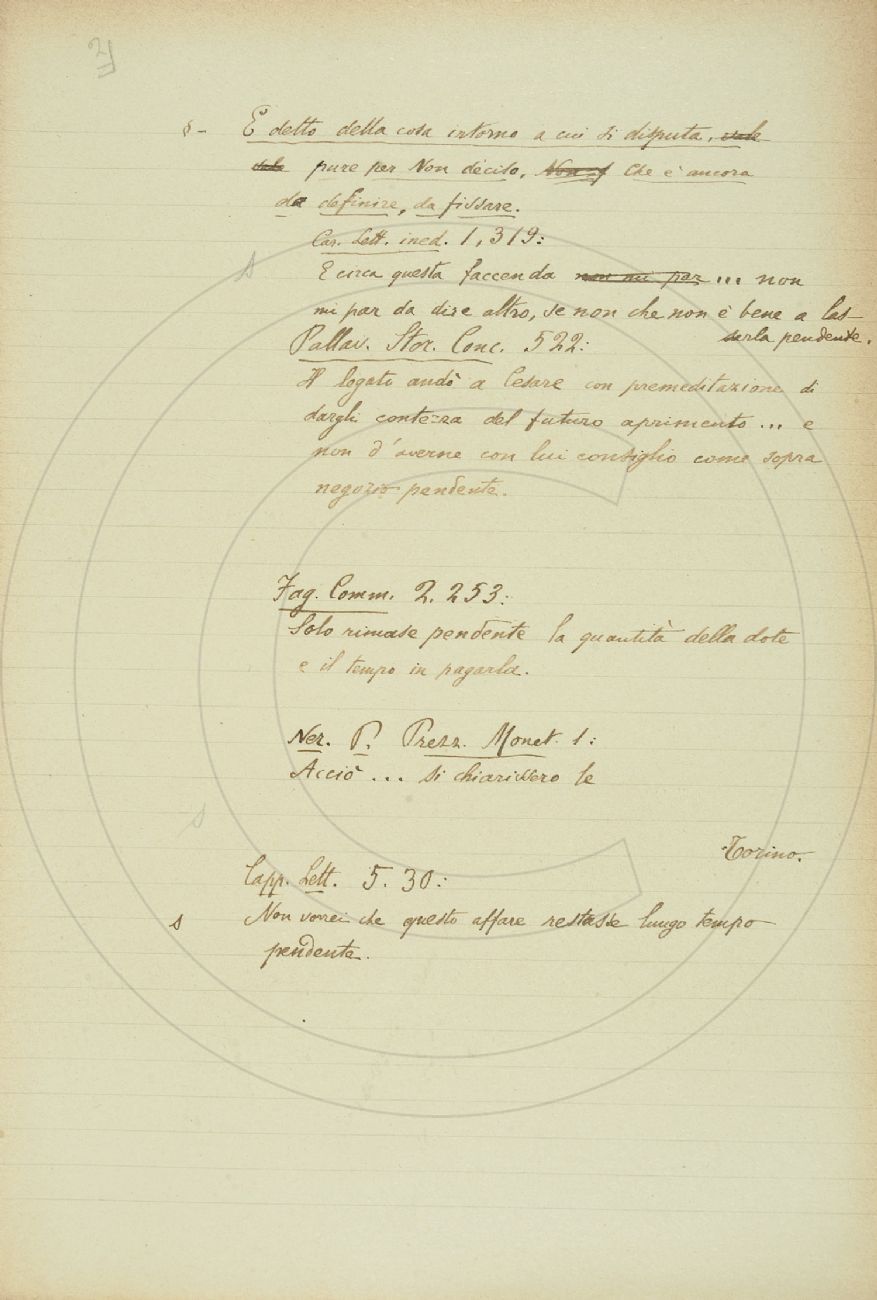 § - E detto della cosa intorno a cui si disputa, vale
vale pure per Non deciso, Non Che è ancora
da definire, da fissare.
Car. Lett. ined. 1, 319:
E circa questa faccenda non mi par ... non
mi par da dire altro, se non che non è bene a las-
sarla pendente.
Pallav. Stor. Conc. 522:
Il legato andò a Cesare con premeditazione di
dargli contezza del futuro aprimento ... e
non d'averne con lui consiglio come sopra
negozio pendente.
Fag. Comm. 2. 253:
Solo rimase pendente la quantità della dote
e il tempo in pagarla.
Ner. P. Prezz. Monet. 1:
Acciò ... si chiarissero le
Torino.
Capp. Lett. 5. 30:
s Non vorrei che questo affare restasse lungo tempo
pendente.